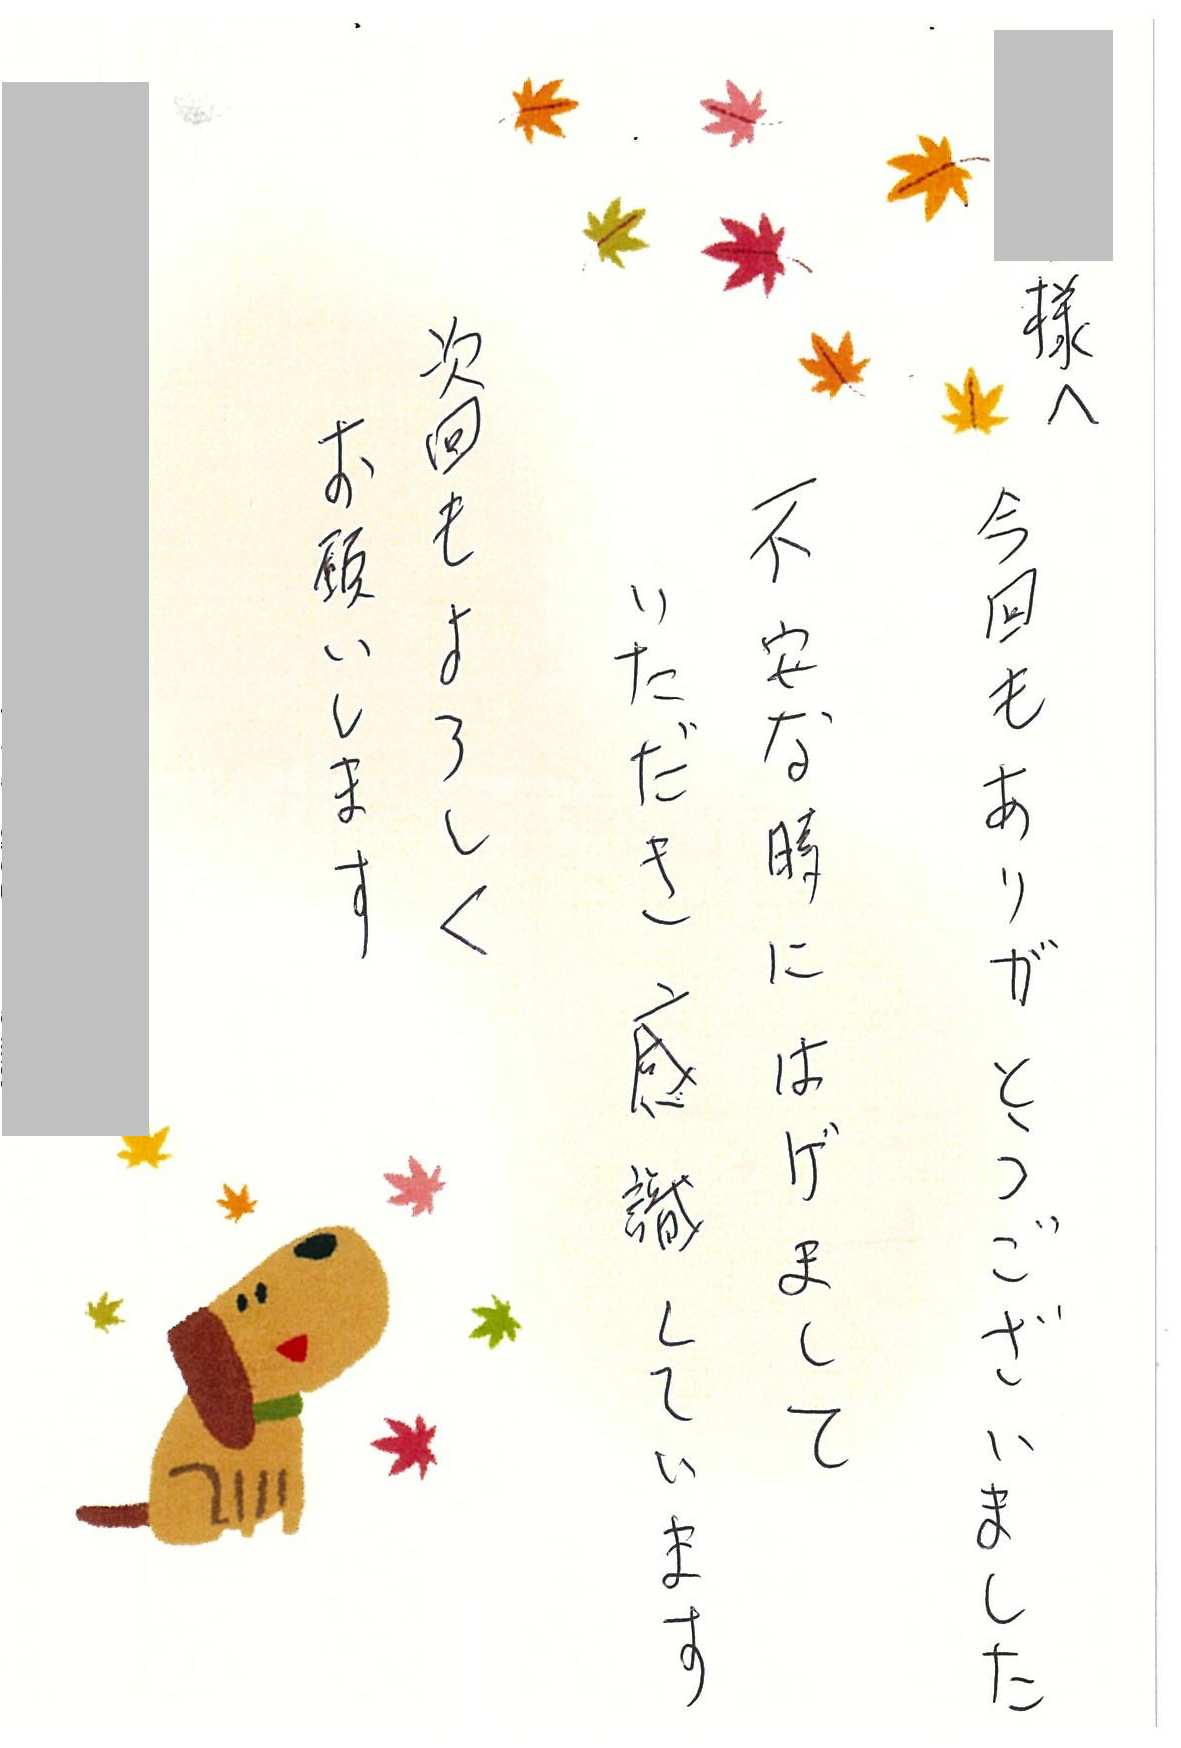 様へ
今回もありがとうございました
不安な時にはげまして
いただき感識しています
次回もよろしく
お願いします